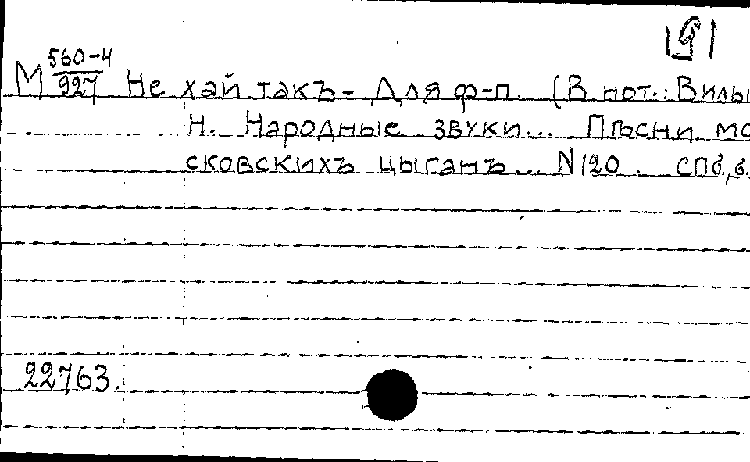 191
М 560-4/927 Не хай такъ - Для ф-п. (В нот.: Вилы
Н. Народные звуки... Пѣсни мо
сковскихъ цыганъ... N120. СПб, б.
22763.